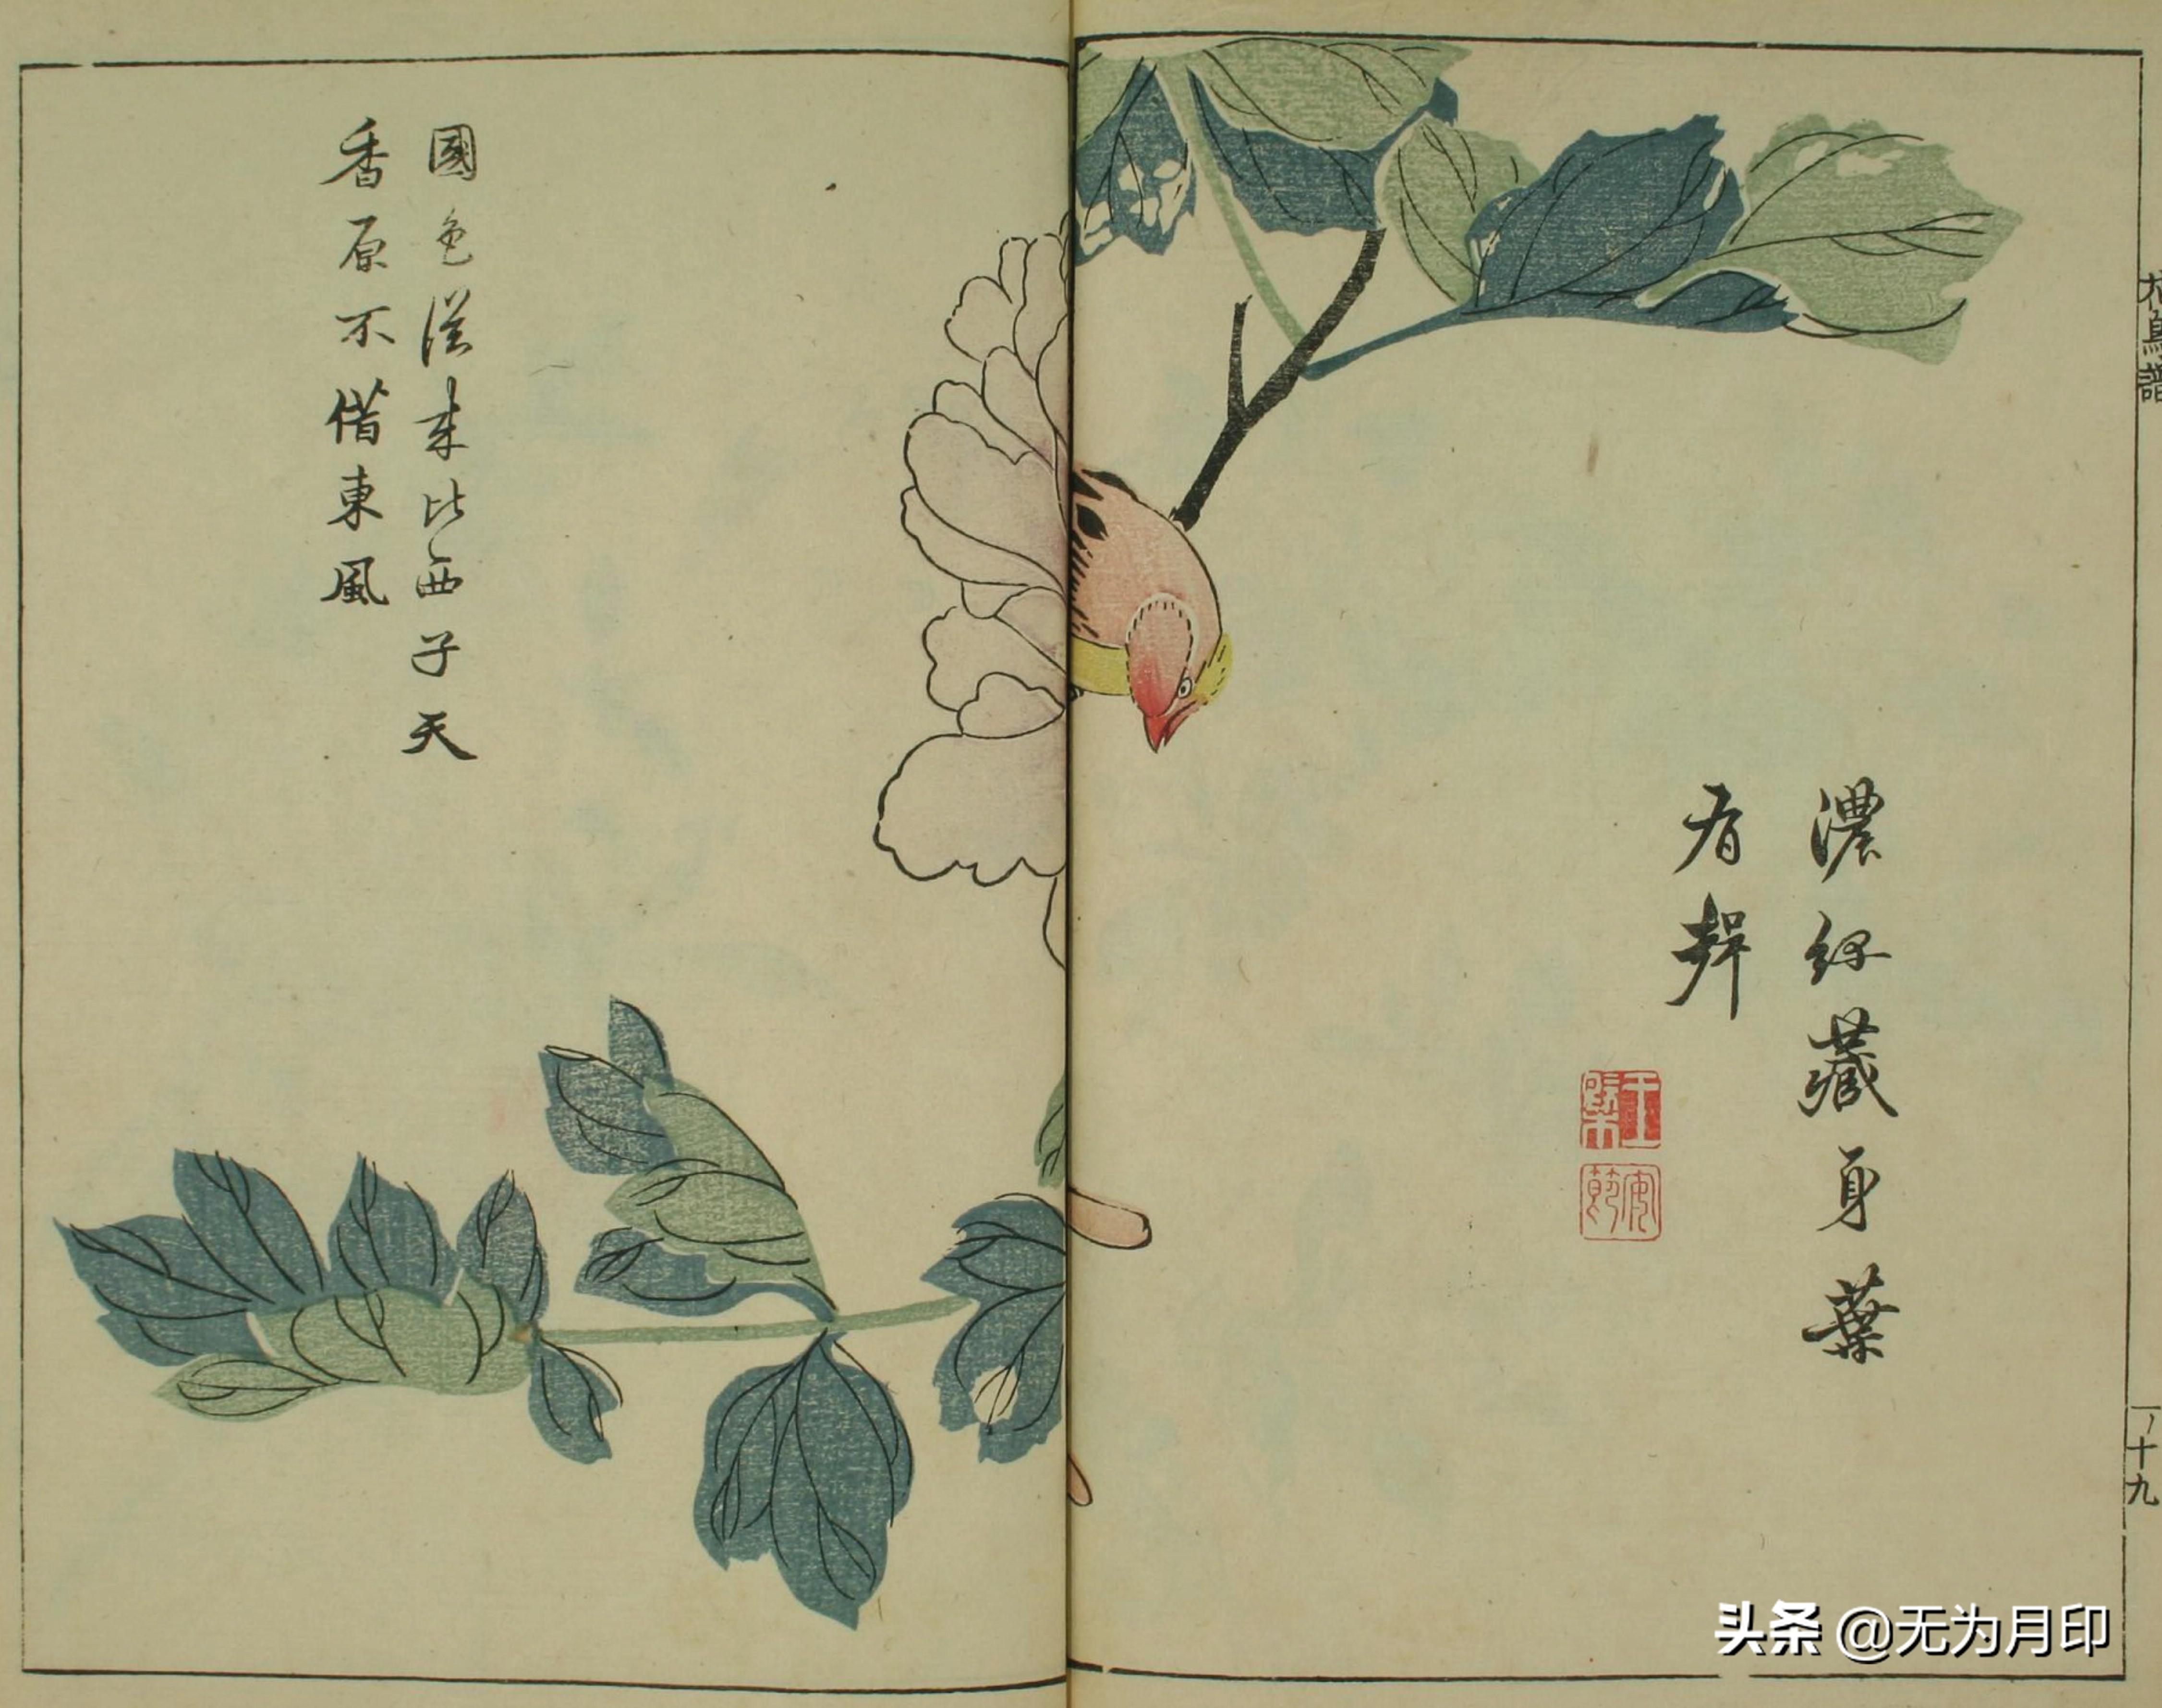 花鳥譜
十九
濃綠藏身葉
有聲
王槩
安節
國色從來比西子天
香原不借東風
头条 @无为月印